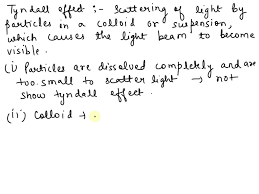 Tyndall effect :- Scattering of light by
particles in a colloid or suspension,
which causes the light beam to become
visible.
(i) Particles are dissolved completely and are
too small to scatter light → not
show tyndall effect.
(ii) Colloid +